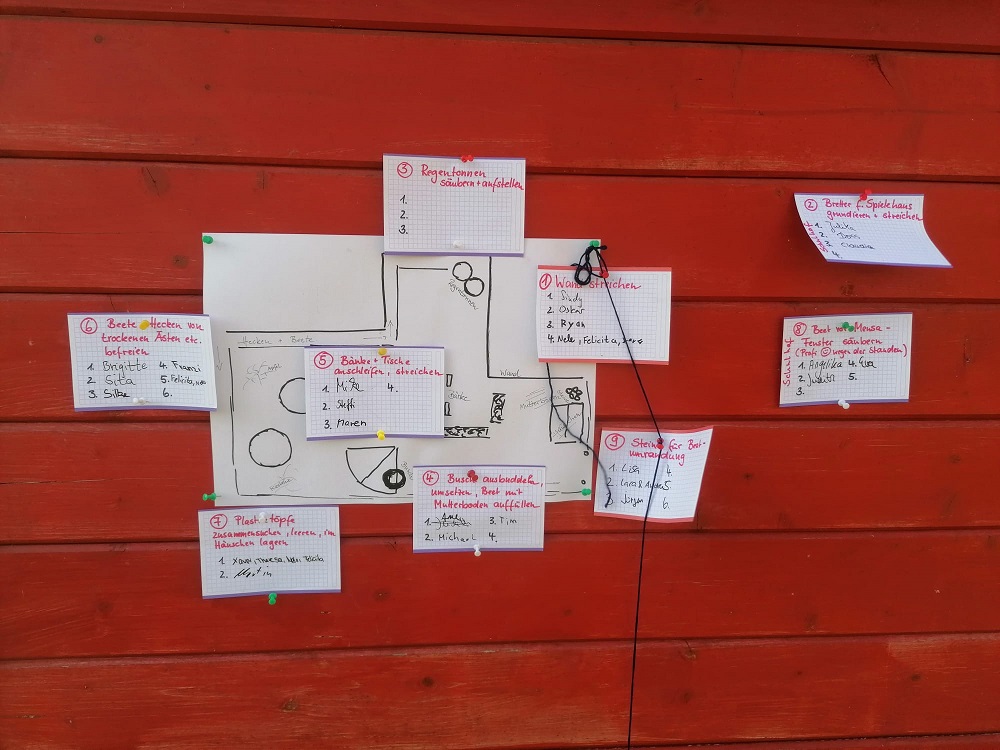 ③ Regentonnen
säubern + aufstellen
1.
2.
3.
② Bretter f. Spielehaus
grundieren + streichen
1. Julika
2.
3. Claudia
4.
① Wand streichen
1. Sindy
2. Oskar
3. Ryan
4. Nele, Felicita,
⑥ Beete + Hecken von
trockenen Ästen etc.
befreien
1. Brigitte 4. Franzi
2. Gita 5. Felicita, Nele
3. Silke 6.
Hecken + Beete
Regentonnen
Wand
⑤ Bänke + Tische
anschleifen, streichen
1. 4.
2. Steffi
3. Maren
Bänke
⑧ Beet vor Mensa-
Fenster säubern
(Prof: wegen der Stauden)
Schulhof
1. Angelika 4. Eva
2. Judith 5.
3.
⑨ Steine für Beet-
umrandung
1. Lisa 4.
2. 5.
3. Jürgen 6.
④ Busch ausbuddeln,
umsetzen, Beet mit
Mutterboden auffüllen
1. 3. Tim
2. Michael 4.
⑦ Plastiktöpfe
zusammensuchen, leeren, im
Häuschen lagern
1. Theresa, Nele, Felicita
2. Martin